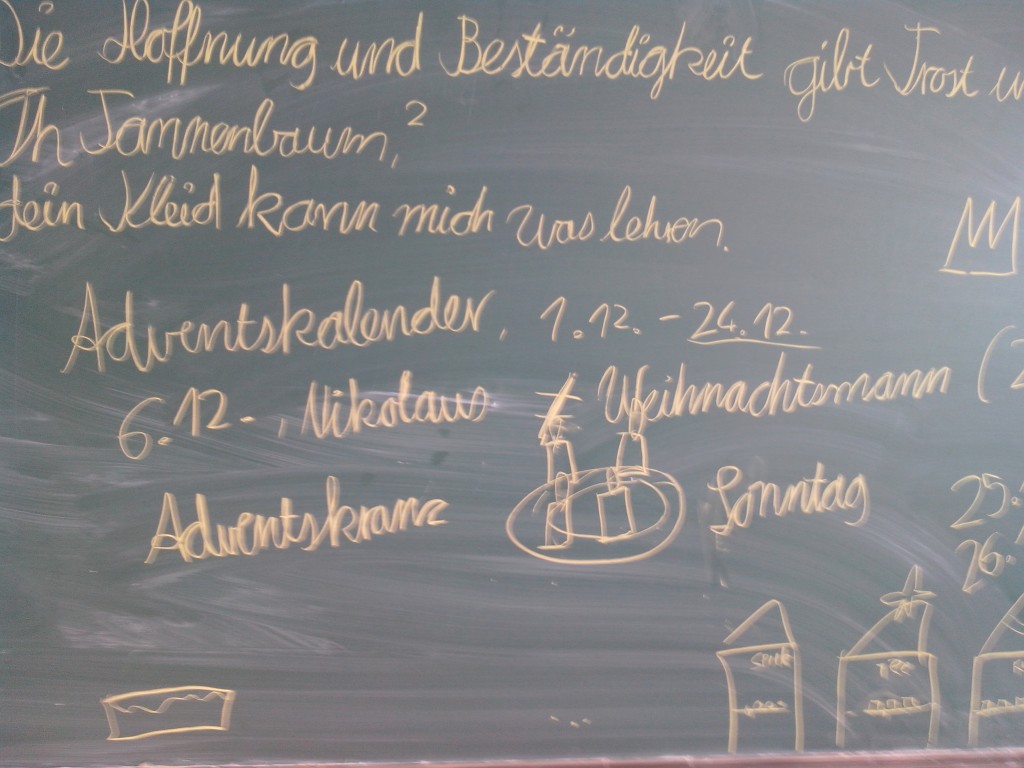 Die Hoffnung und Beständigkeit gibt Trost u
Oh Tannenbaum,²
dein Kleid kann mich was lehren.
Adventskalender, 1.12. - 24.12.
6.12., Nikolaus ≠ Weihnachtsmann (2
Adventskranz Sonntag 25.
26.